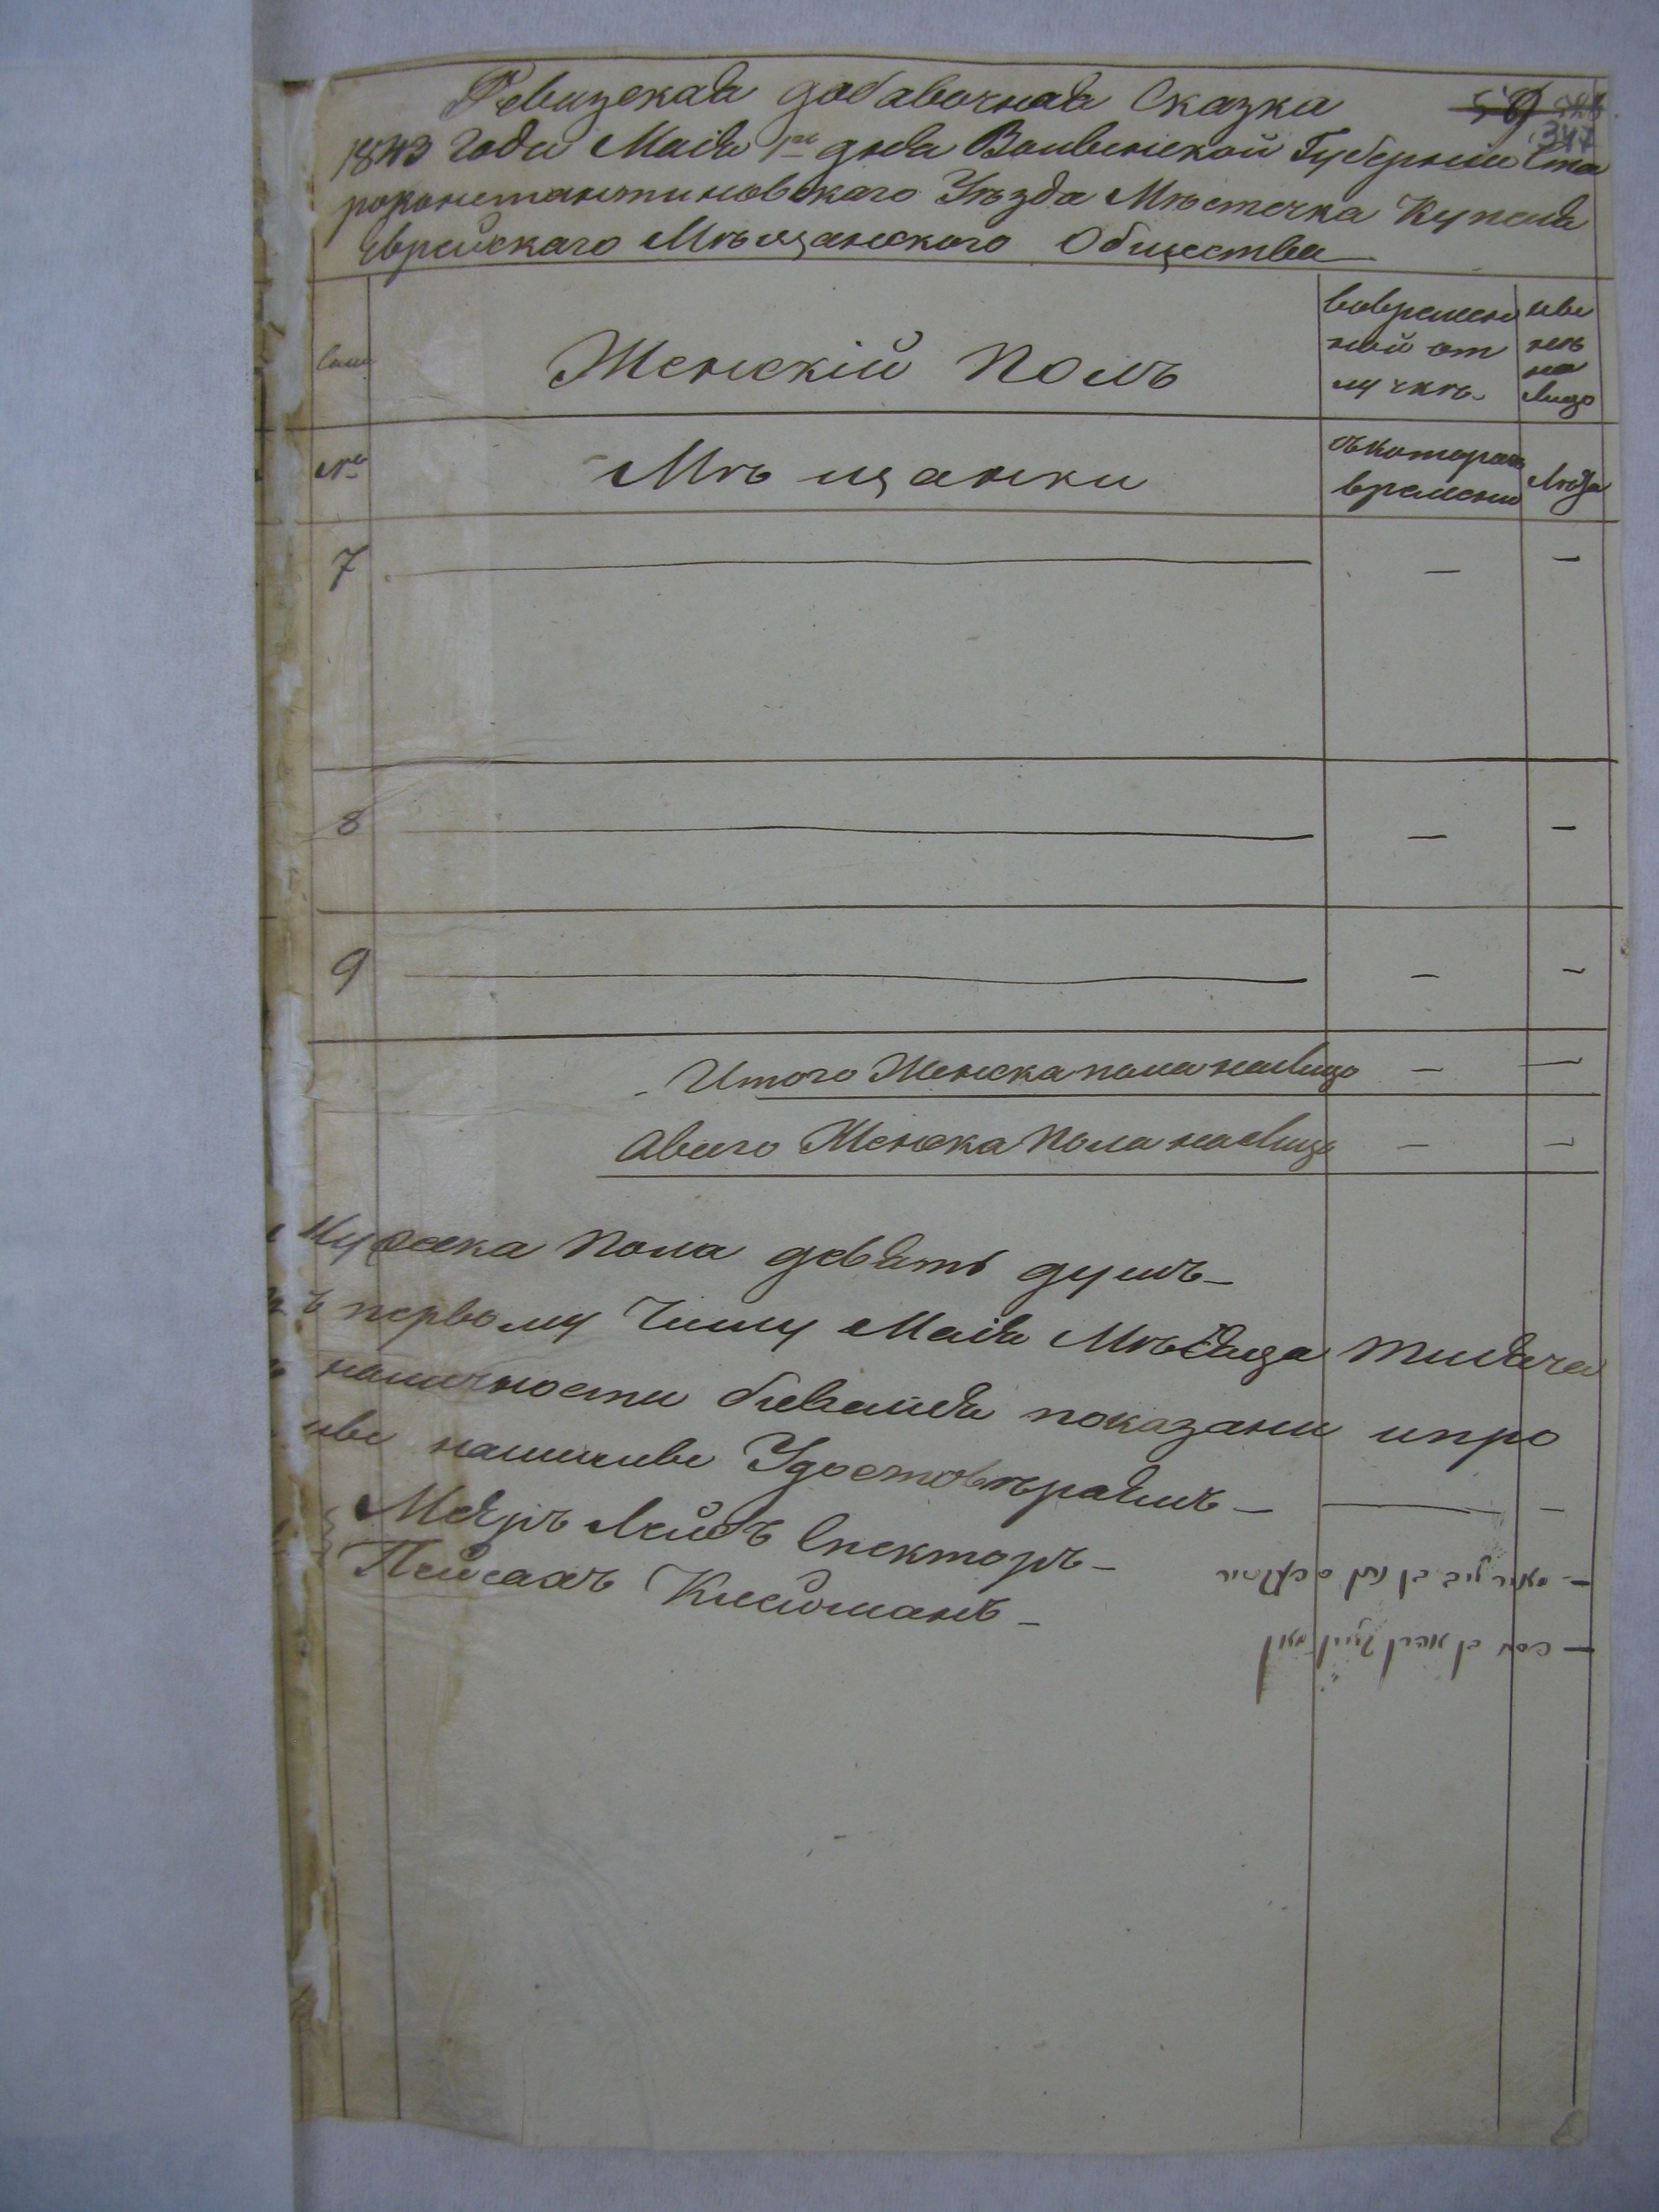 Ревизская добавочная Сказка
347
1843 Года Маія 1го дня Волинской Губерніи Ста
роконстантиновскаго Уѣзда Мѣстечка Купеля
Еврейскаго Мѣщанского Общества
Женскій Полъ
вовремен
ной от
лучкѣ
ине
нѣ
на
лицо
№
Мѣщанки
съкоторого
времени
Лѣта
7 — — —
8 — — —
9 — — —
Итого Женска пола налицо — —
Авсего Женска Пола налицо — —
Мужеска Пола девять душъ
ъ первому Числу Маія Мѣсяца Тисяча
наличности показани ипро
Удостовѣраемъ
Меяръ Лейбъ Спекторъ
Пейсахъ Клейманъ
מאיר ליב בן נתן ספעקטור
פסח בן אהרן קליימאן